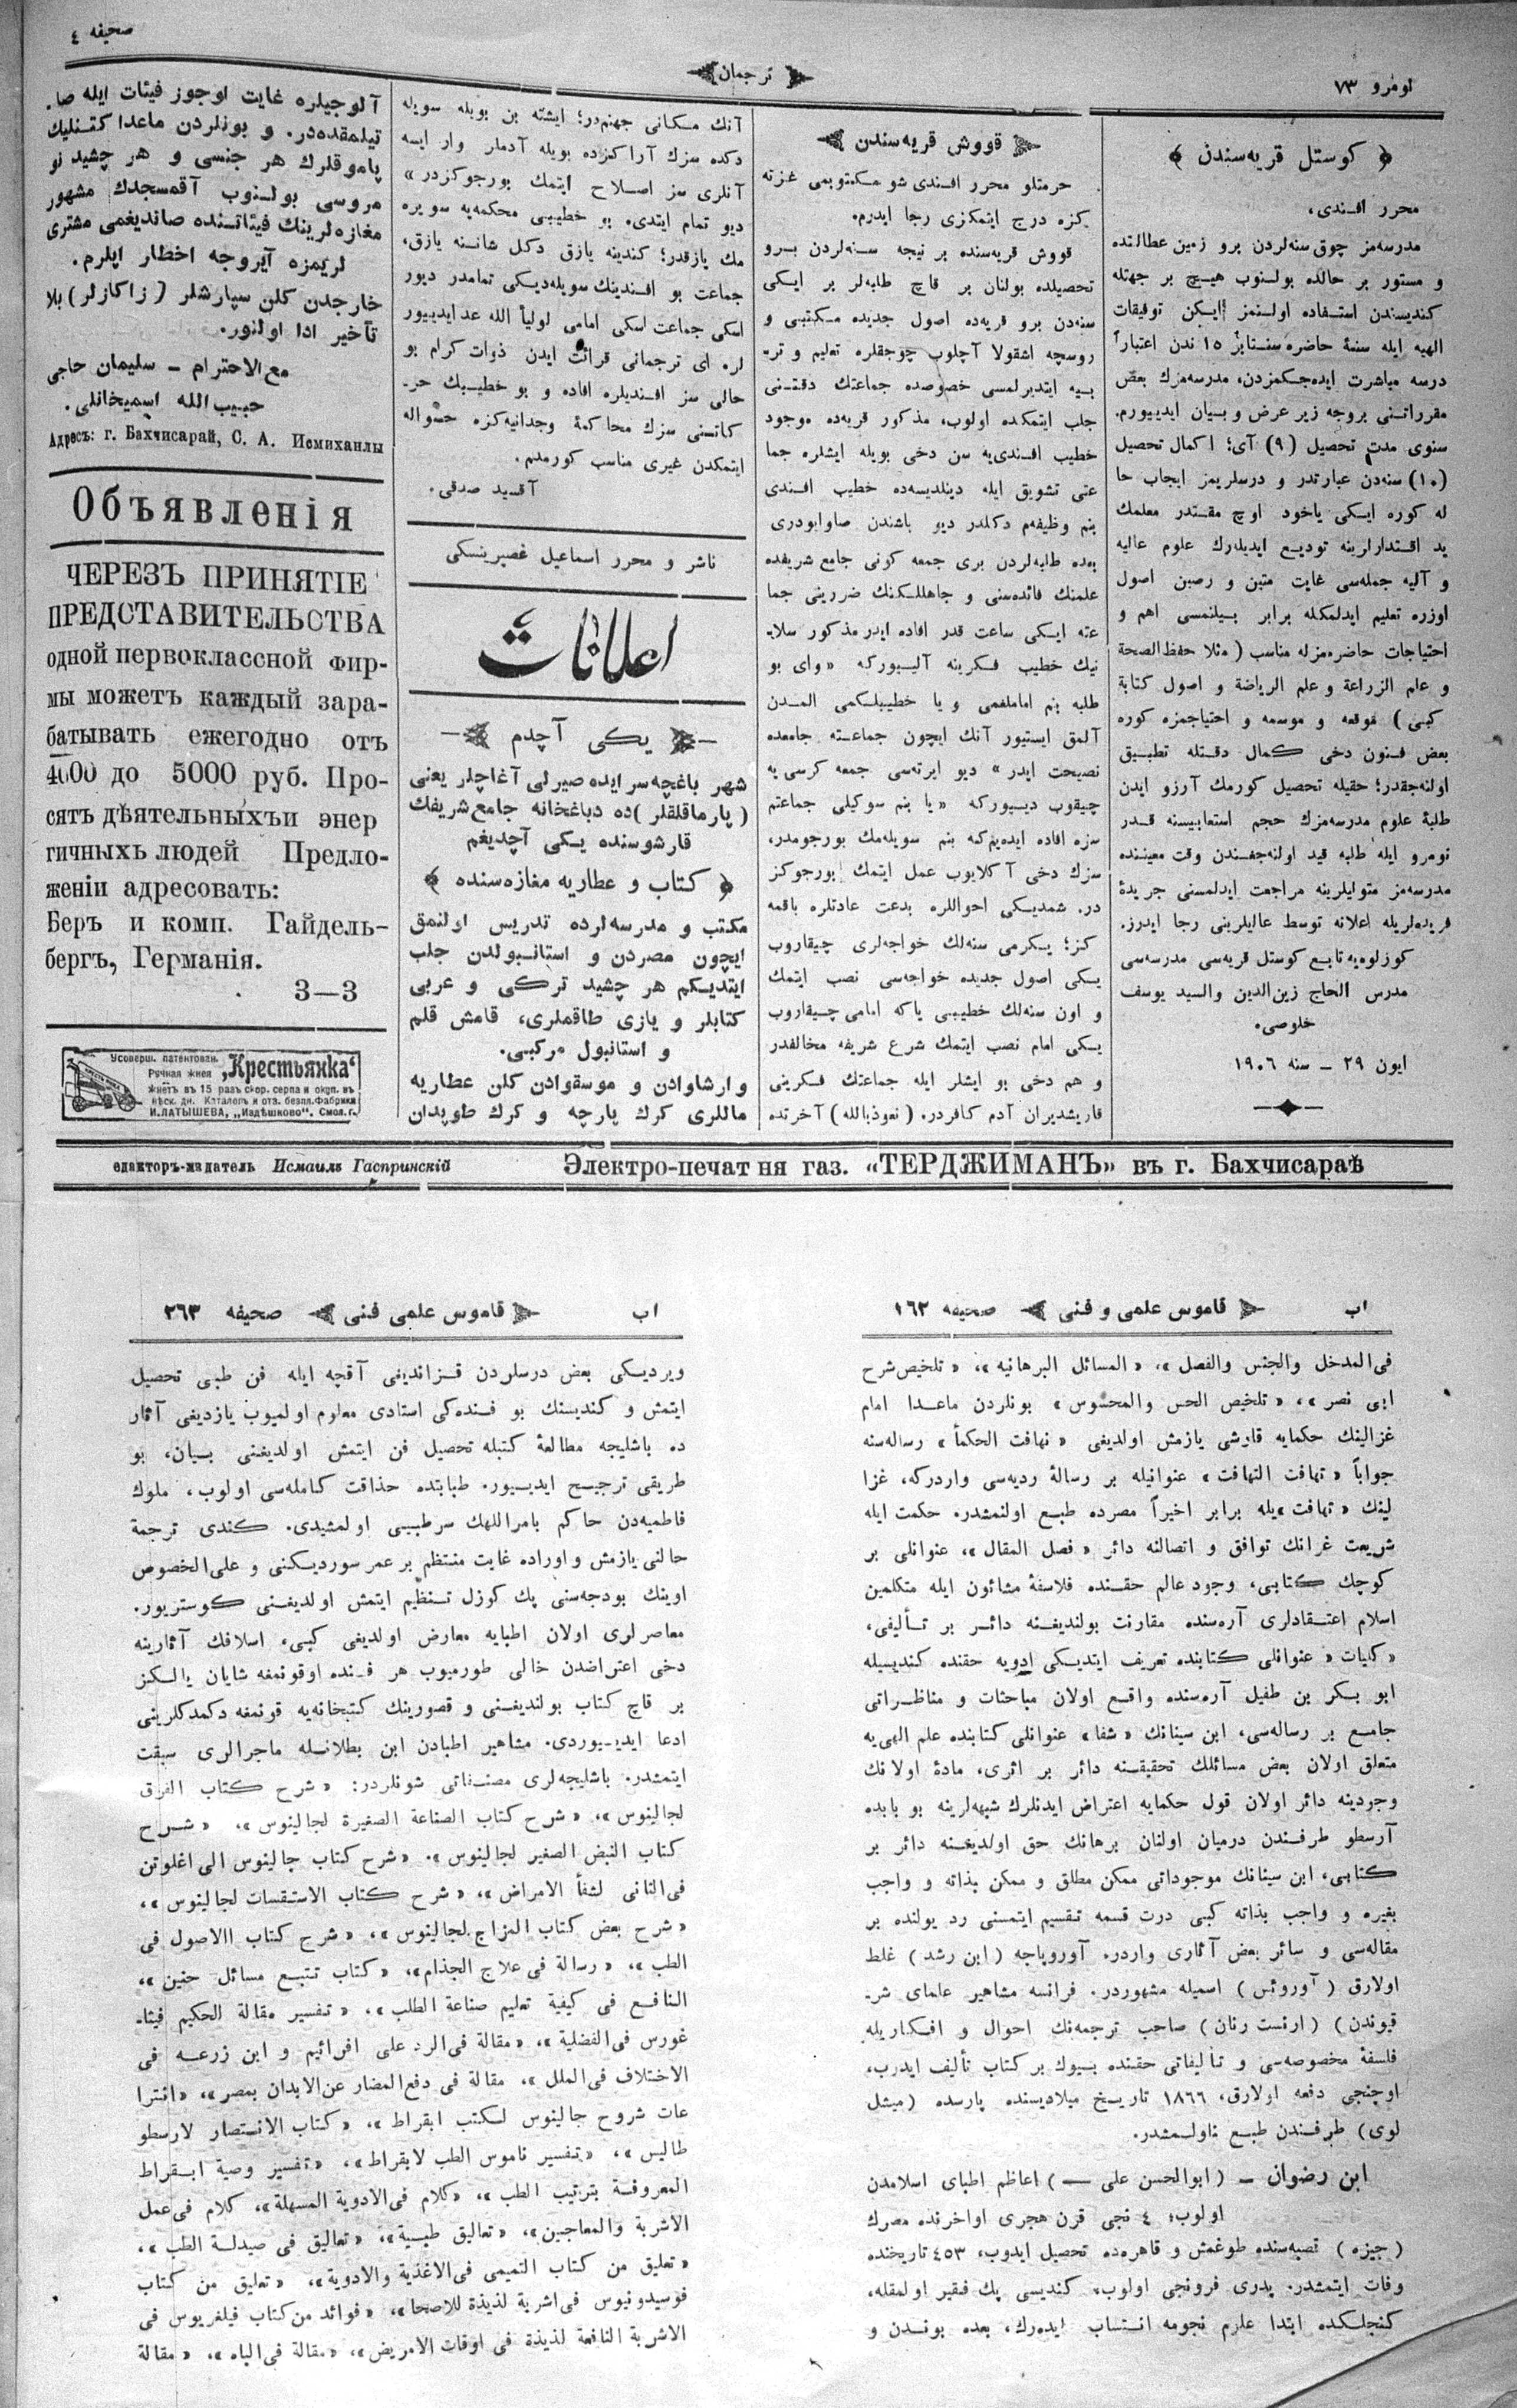 نومرو ٧٣
ترجمان
صحيفه ٤
﴿ كوستل قريه‌سندن ﴾
محرر افندى،
مدرسه‌مز چوق سنه‌لردن برو زمين عطالتده
و مستور بر حالده بولنوب هيچ بر جهتله
كنديسندن استفاده اولنمز ايكن توفيقات
الهيه ايله سنۀ حاضره سنتابر ١٥ ندن اعتباراً
درسه مباشرت ايده‌جكمزدن، مدرسه‌مزك بعض
مقرراتنى بروجه زير عرض و بيان ايدييورم.
سنوى مدت تحصيل (٩) آى؛ اكمال تحصيل
(١٠) سنه‌دن عبارتدر و درسلريمز ايجاب حا
له كوره ايكى ياخود اوچ مقتدر معلمك
يد اقتدارلرينه توديع ايديله‌رك علوم عاليه
و آليه جمله‌سى غايت متين و رصين اصول
اوزره تعليم ايدلمكله برابر بيلنمسى اهم و
احتياجات حاضره‌مزله مناسب (مثلا حفظ الصحة
و علم الزراعة و علم الرياضة و اصول كتابة
كبى) موقعه و موسمه و احتياجمزه كوره
بعض فنون دخى كمال دقتله تطبيق
اولنه‌جقدر؛ حقيله تحصيل كورمك آرزو ايدن
طلبۀ علوم مدرسه‌مزك حجم استعابيسنه قدر
نومرو ايله طلبه قيد اولنه‌جغندن وقت معيننده
مدرسه‌مز متوليلرينه مراجعت ايدلمسنى جريدۀ
فريده‌لريله اعلانه توسط عاليلرينى رجا ايدرز.
كوزلوه‌يه تابع كوستل قريه‌سى مدرسه‌سى
مدرس الحاج زين‌الدين والسيد يوسف
خلوصى.
ايون ٢٩ – سنه ١٩٠٦
قووش قريه‌سندن
حرمتلو محرر افندى شو مكتوبمى غزته
كزه درج ايتمكزى رجا ايدرم.
قووش قريه‌سنده بر نيچه سنه‌لردن برو
تحصيلده بولنان بر قاچ طلبه‌لر بر ايكى
سنه‌دن برو قريه‌ده اصول جديده مكتبى و
روسچه اشقولا آچلوب چوجقلره تعليم و تر-
بيه ايتديرلمسى خصوصده جماعتك دقتنى
جلب ايتمكده اولوب، مذكور قريه‌ده موجود
خطيب افندى‌يه سن دخى بويله ايشلره جما
عتى تشويق ايله دينلديسه‌ده خطيب افندى
بنم وظيفه‌م دكلدر ديو باشندن صاوابودرى
بعده طلبه‌لردن برى جمعه كونى جامع شريفده
علمنك فائده‌سنى و جاهللكنك ضررينى جما
عته ايكى ساعت قدر افاده ايدر مذكور سلا-
نيك خطيب فكرينه آلييوركه «واى بو
طلبه بنم اماملغمى و يا خطيبلكمى المدن
آلمق ايستيور آنك ايچون جماعته جامعده
نصيحت ايدر» ديو ايرته‌سى جمعه كرسى يه
چيقوب دييوركه «يا بنم سوكيلى جماعتم
سزه افاده ايده‌يم‌كه بنم سويله‌مك بورجومدر،
سزك دخى آكلايوب عمل ايتمك بورجوكز
در. شمديكى احواللره بدعت عادتلره باقمه
كز؛ يكرمى سنه‌لك خواجه‌لرى چيقاروب
يكى اصول جديده خواجه‌سى نصب ايتمك
و اون سنه‌لك خطيبى ياكه امامى چيقاروب
يكى امام نصب ايتمك شرع شريفه مخالفدر
و هم دخى بو ايشلر ايله جماعتك فكرينى
قاريشديران آدم كافردر. (نعوذبالله) آخرتده
آنك مكانى جهنم‌در؛ ايشته بن بويله سويله
دكده سزك آراكزده بويله آدملر وار ايسه
آنلرى سز اصلاح ايتمك بورجوكزدر»
ديو تمام ايتدى. بو خطيبى محكمه‌يه سويره
مك يازقدر؛ كندينه يازق دكل شانـنه يازق،
جماعت بو افندينك سويله‌ديكى تمامدر ديور
اسكى جماعت اسكى امامى لوليأ الله عد ايدييور
لر. اى ترجمانى قرائت ايدن ذوات كرام بو
حالى سز افنديلره افاده و بو خطيبك حر-
كاتنى سزك محاكمۀ وجدانيه‌كزه حواله
ايتمكدن غيرى مناسب كورمدم.
آقسيد صدقى.
ناشر و محرر اسماعيل غصپرينسكى
اعلانات
يكى آچدم
شهر باغچه‌سرايده صيرلى آغاچلر يعنى
(پارماقلقلر)ده دباغخانه جامع شريفك
قارشوسنده يكى آچديغم
﴿ كتاب و عطاريه مغازه‌سنده ﴾
مكتب و مدرسه‌لرده تدريس اولنمق
ايچون مصردن و استانبولدن جلب
ايتديكم هر چشيد تركى و عربى
كتابلر و يازى طاقملرى، قامش قلم
و استانبول مركبى.
وارشاوادن و موسقوادن كلن عطاريه
ماللرى كرك پارچه و كرك طوپدان
آلوجيلره غايت اوجوز فيئات ايله صا.
تيلمقده‌در. و بونلردن ماعدا كتنليك
پاموقلرك هر جنسى و هر چشيد نو
مروسى بولنوب آقمسجدك مشهور
مغازه‌لرينك فيئاتنده صانديغمى مشترى
لريمزه آيروجه اخطار ايلرم.
خارجدن كلن سپارشلر (زاكازلر) بلا
تأخير ادا اولنور.
مع الاحترام – سليمان حاجى
حبيب‌الله اسميخانلى.
Адресъ: г. Бахчисарай, С. А. Исмиханлы
Объявленія
ЧЕРЕЗЪ ПРИНЯТІЕ
ПРЕДСТАВИТЕЛЬСТВА
одной первоклассной фир-
мы можетъ каждый зара-
батывать ежегодно отъ
4000 до 5000 руб. Про-
сятъ дѣятельныхъи энер
гичныхъ людей Предло-
женіи адресовать:
Беръ и комп. Гайдель-
бергъ, Германія.
3—3
Усоверш. патентован.
Ручная жнея „Крестьянка“
жнетъ въ 15 разъ скор. серпа и окуп. въ
нѣск. дн. Каталогъ и отз. безпл. Фабрики
И. ЛАТЫШЕВА, „Издѣшково“. Смол. г.
едакторъ-издатель Исмаилъ Гаспринскій
Электро-печат ня газ. «ТЕРДЖИМАНЪ» въ г. Бахчисараѣ
اب
قاموس علمى و فنى
صحيفه ١٦٢
فى المدخل والجنس والفصل»، «المسائل البرهانيه»، «تلخيص شرح
ابى نصر»، «تلخيص الحس والمحسوس» بونلردن ماعدا امام
غزالينك حكمايه قارشى يازمش اولديغى «تهافت الحكمأ» رساله‌سنه
جواباً «تهافت التهافت» عنوانيله بر رسالۀ رديه‌سى واردركه، غزا
لينك «تهافت»يله برابر اخيراً مصرده طبع اولنمشدر. حكمت ايله
شريعت غرانك توافق و اتصالنه دائر «فصل المقال»، عنوانلى بر
كوچك كتابى، وجود عالم حقنده فلاسفۀ مشائون ايله متكلمين
اسلام اعتقادلرى آره‌سنده مقارنت بولنديغنه دائر بر تأليفى،
«كليات» عنوانلى كتابنده تعريف ايتديكى ادويه حقنده كنديسيله
ابو بكر بن طفيل آره‌سنده واقع اولان مباحثات و مناظراتى
جامع بر رساله‌سى، ابن سينانك «شفا» عنوانلى كتابنده علم الهى‌يه
متعلق اولان بعض مسائلك تحقيقنه دائر بر اثرى، مادۀ اولانك
وجردينه دائر اولان قول حكمايه اعتراض ايدنلرك شبهه‌لرينه بو بابده
آرسطو طرفندن درميان اولنان برهانك حق اولديغنه دائر بر
كتابى، ابن سينانك موجوداتى ممكن مطلق و ممكن بذاته و واجب
بغيره و واجب بذاته كبى درت قسمه تقسيم ايتمسنى رد يولنده بر
مقاله‌سى و سائر بعض آثارى واردر. آوروپاجه (ابن رشد) غلط
اولارق (آوروئس) اسميله مشهوردر. فرانسه مشاهير علماى شر-
قيوندن) (ارنست رنان) صاحب ترجمه‌نك احوال و افكاريله
فلسفۀ مخصوصه‌سى و تأليفاتى حقنده بيوك بر كتاب تأليف ايدرب،
اوچنجى دفعه اولارق، ١٨٦٦ تاريخ ميلاديسنده پارسده (ميشل
لوى) طرفندن طبع ناولمشدر.
ابن رضوان – (ابوالحسن على —) اعاظم اطباى اسلامدن
اولوب؛ ٤ نجى قرن هجرى اواخرنده مصرك
(جيزه) قصبه‌سنده طوغمش و قاهره‌ده تحصيل ايدوب، ٤٥٣ تاريخنده
وفات ايتمشدر. پدرى فرونجى اولوب، كنديسى پك فقير اولمقله،
كنجلكده ابتدا علرم نجومه انتساب ايده‌رك، بعده بوندن و
اب
قاموس علمى فنى
صحيفه ٢٦٣
ويرديكى بعض درسلردن قزانديغى آقچه ايله فن طبى تحصيل
ايتمش و كنديسنك بو فنده‌كى استادى معلوم اولميوب يازديغى آثار
ده باشليجه مطالعۀ كتبله تحصيل فن ايتمش اولديغنى بيان، بو
طريقى ترجيح ايدييور. طبابتده حذاقت كامله‌سى اولوب، ملوك
فاطميه‌دن حاكم بامراللهك سرطبيبى اولمشيدى. كندى ترجمۀ
حالنى يازمش و اوراده غايت منتظم بر عمر سورديكنى و على‌الخصوص
اوينك بودجه‌سنى پك كوزل تنظيم ايتمش اولديغنى كوستريور.
معاصرلرى اولان اطبايه معارض اولديغى كبى، اسلافك آثارينه
دخى اعتراضدن خالى طورميوب هر فنده اوقونمغه شايان يالكز
بر قاچ كتاب بولنديغنى و قصورينك كتبخانه‌يه قونمغه دكمدكلرينى
ادعا ايدييوردى. مشاهير اطبادن ابن بطلانله ماجرالرى سبقت
ايتمشدر. باشليجه‌لرى مصنفاتى شونلردر: «شرح كتاب الفرق
لجالينوس»، «شرح كتاب الصناعة الصغيرة لجالينوس»، «شرح
كتاب النبض الصغير لجالينوس». «شرح كتاب جالينوس الى اغلوتن
فى‌التانى لشفأ الامراض»، «شرح كتاب الاستقسات لجالينوس»،
«شرح بعض كتاب المزاج لجالينوس»، «شرح كتاب االاصول فى
الطب»، «رسالة فى علاج الجذام»، «كتاب تتبع مسائل حنين»،
النافع فى كيفية تعليم صناعة الطلب»، «تفسير مقالة الحكيم فيثا-
غورس فى‌الفضلية»، «مقالة فى‌الرد على افرائيم و ابن زرعه فى
الاختلاف فى‌الملل»، مقالة فى دفع المضار عن‌الابدان بمصر»، «انتزا
عات شروح جالينوس لكتب ابقراط»، «كتاب الانتصار لارسطو
طاليس»، «تفسير ناموس الطب لابقراط»، «تفسير وصية ابقراط
المعروفة بترتيب الطب»، «كلام فى‌الادوية المسهلة»، كلام فى‌عمل
الاشربة والمعاجين»، «تعاليق طبية»، «تعاليق فى صيدلة الطب»،
«تعليق من كتاب التميمى فى‌الاغذية والادوية»، «تعليق من كتاب
فوسيدونيوس فى‌اشربة لذيذة للاصحا»، «فوائد من كتاب فيلغريوس فى
الاشربة النافعة لذيذة فى اوقات الامريض»، «مقالة فى‌الباه»، «مقالة